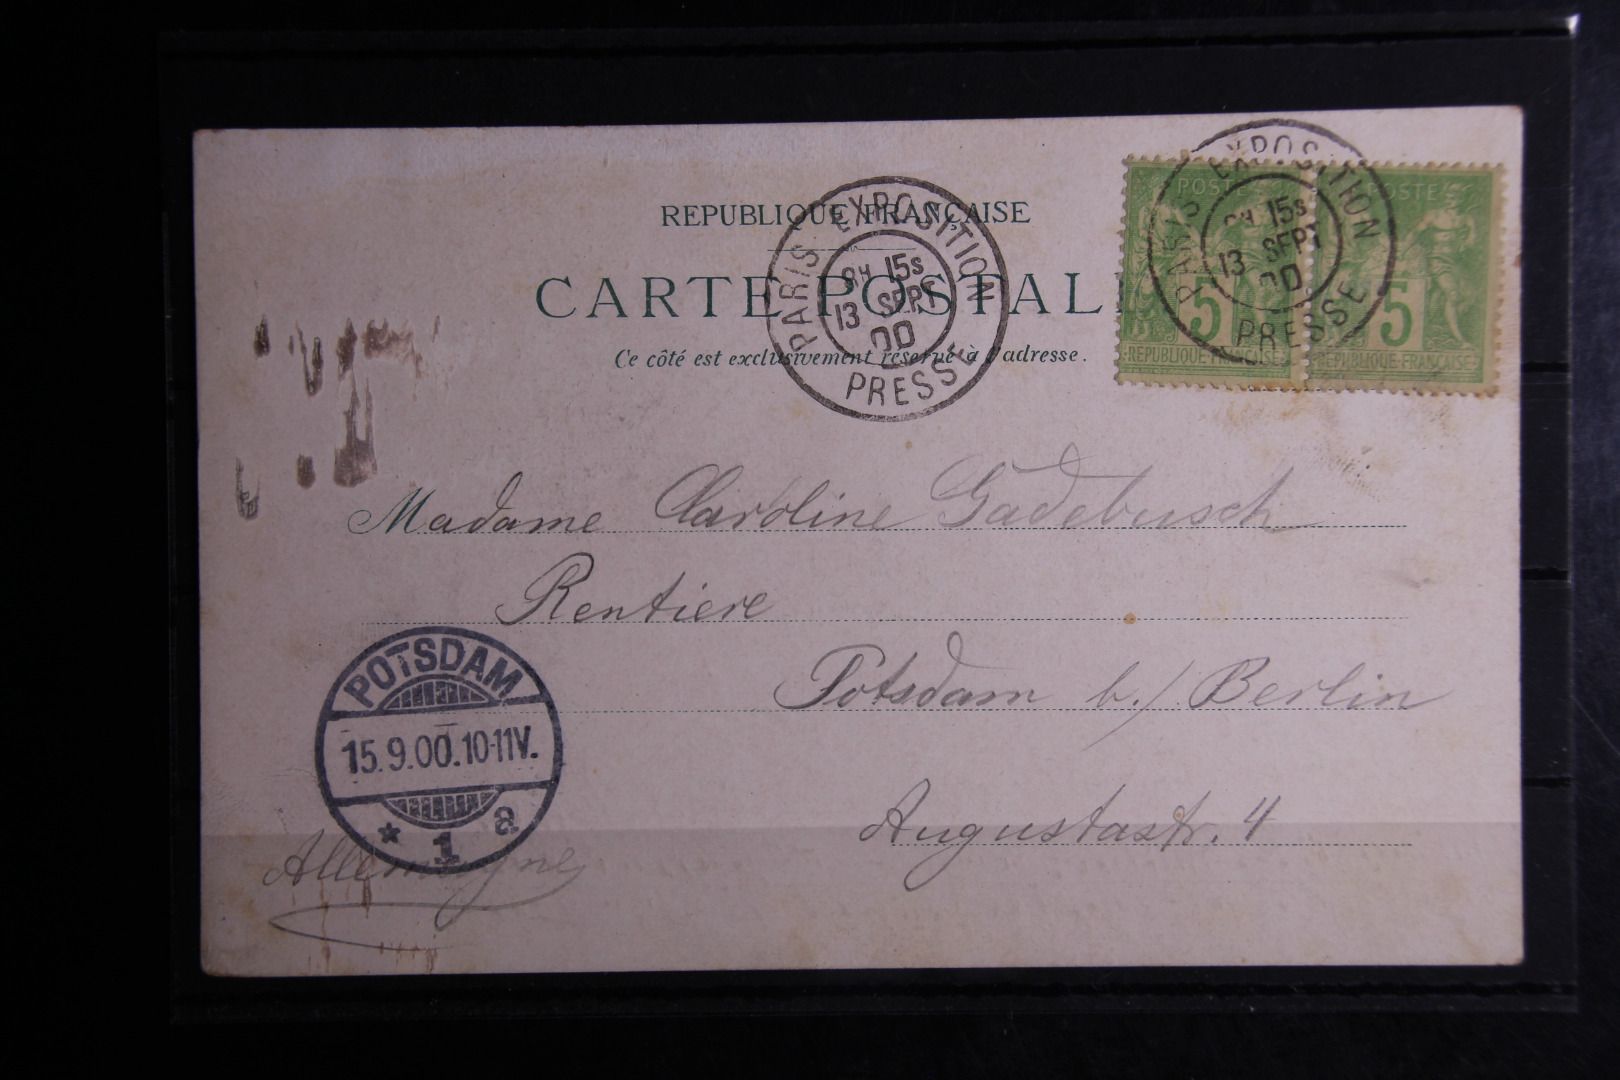 REPUBLIQUE FRANÇAISE
CARTE POSTAL
Ce côté est exclusivement réservé à l'adresse.
PARIS EXPOSITION
8H 15S
13 SEPT
00
PRESSE
POSTE
5
REPUBLIQUE FRANÇAISE
POSTE
5
REPUBLIQUE FRANÇAISE
PARIS EXPOSITION
8H 15S
13 SEPT
00
PRESSE
Madame Caroline Gadebusch
Rentiere
Potsdam b./Berlin
Augustastr. 4
Allemagne
POTSDAM
15.9.00.10-11V.
* 1 a